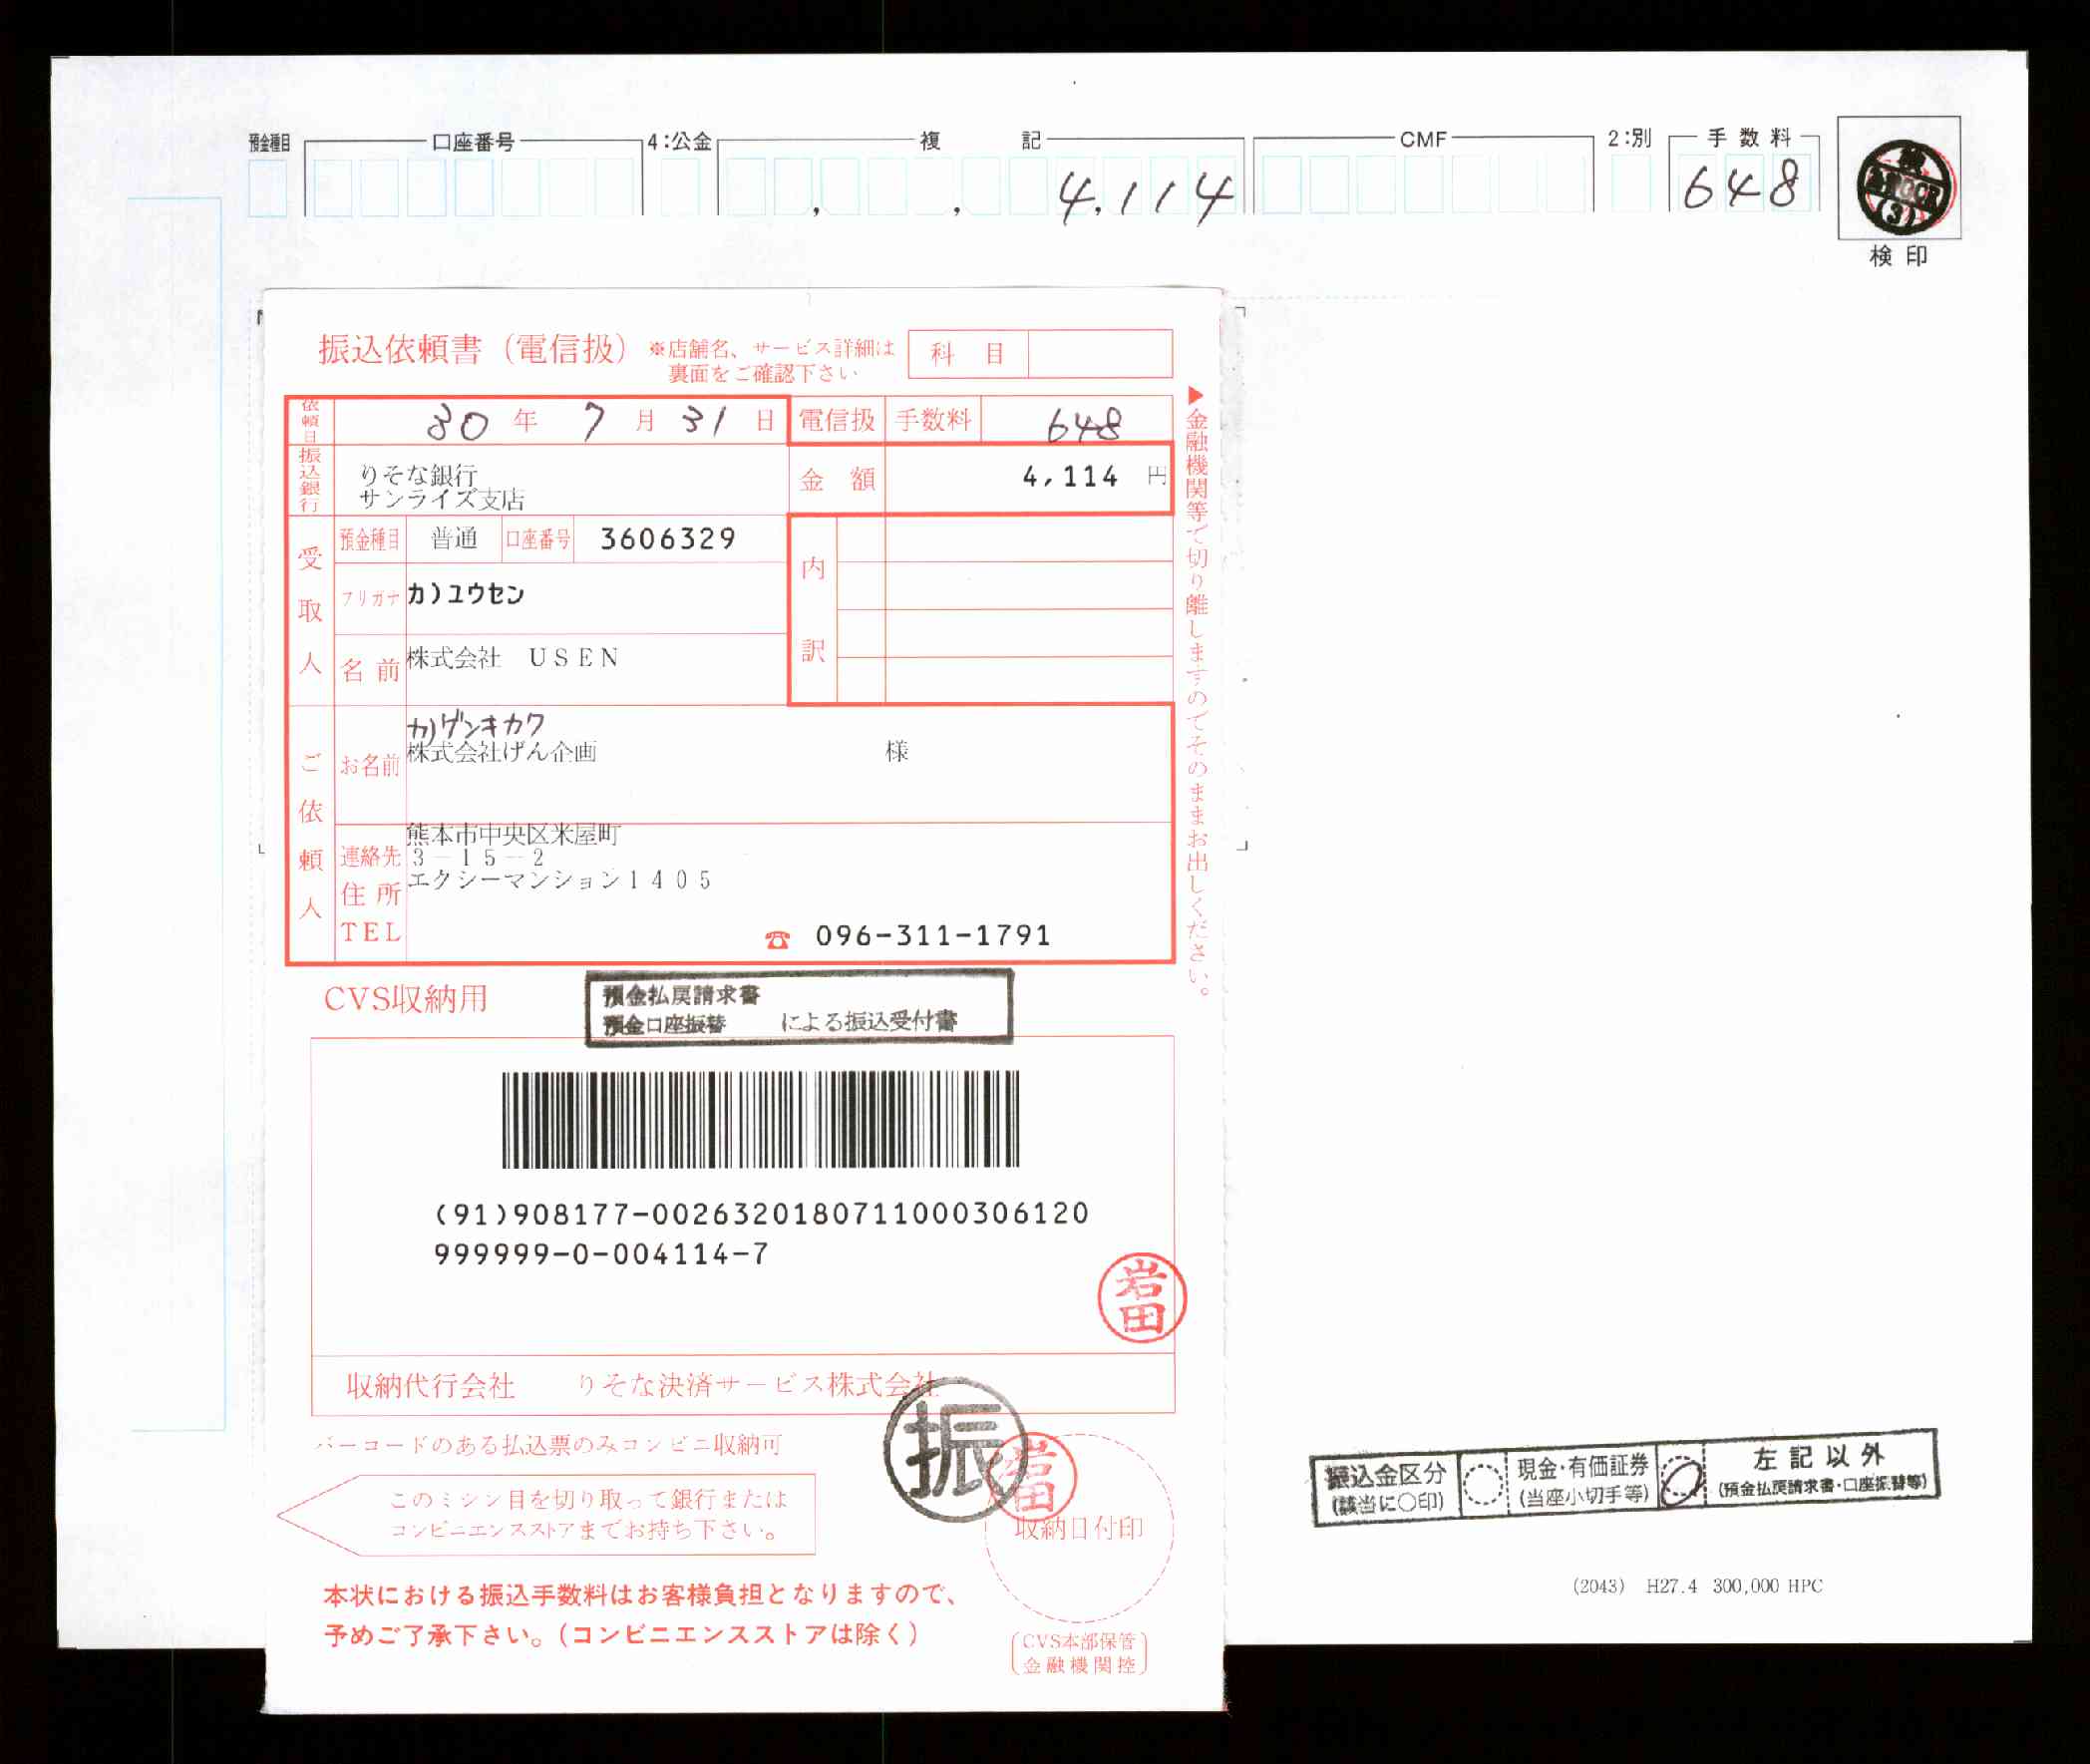 預金種目 口座番号 4:公金 複 記 CMF 2:別 手数料
4,114 648
検印
振込依頼書（電信扱） ※店舗名、サービス詳細は
裏面をご確認下さい
科 目
依頼日 30 年 7 月 31 日 電信扱 手数料 648
振込銀行 りそな銀行
サンライズ支店
金 額 4,114 円
受取人 預金種目 普通 口座番号 3606329
フリガナ カ)ユウセン
名 前 株式会社 USEN
内訳
ご依頼人 お名前 カ)ゲンキカク
株式会社げん企画 様
連絡先 住所 TEL
熊本市中央区米屋町
3－15－2
エクシーマンション1405
☎ 096-311-1791
▶金融機関等で切り離しますのでそのままお出しください。
CVS収納用
預金払戻請求書
預金口座振替 による振込受付書
(91)908177-0026320180711000306120
999999-0-004114-7
岩田
収納代行会社 りそな決済サービス株式会社
振
岩田
バーコードのある払込票のみコンビニ収納可
このミシン目を切り取って銀行または
コンビニエンスストアまでお持ち下さい。
収納日付印
本状における振込手数料はお客様負担となりますので、
予めご了承下さい。(コンビニエンスストアは除く)
CVS本部保管
金融機関控
振込金区分
(該当に○印)
現金・有価証券
(当座小切手等)
左記以外
(預金払戻請求書・口座振替等)
(2043) H27.4 300,000 HPC